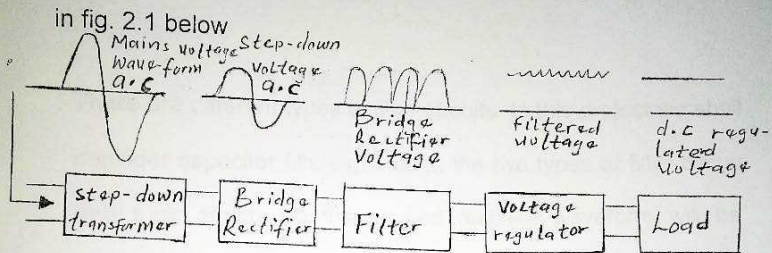 in fig. 2.1 below
Mains voltage
wave-form
a.c
Step-down
voltage
a.c
Bridge
Rectifier
Voltage
filtered
voltage
d.c regu-
lated
voltage
step-down
transformer
Bridge
Rectifier
Filter
Voltage
regulator
Load